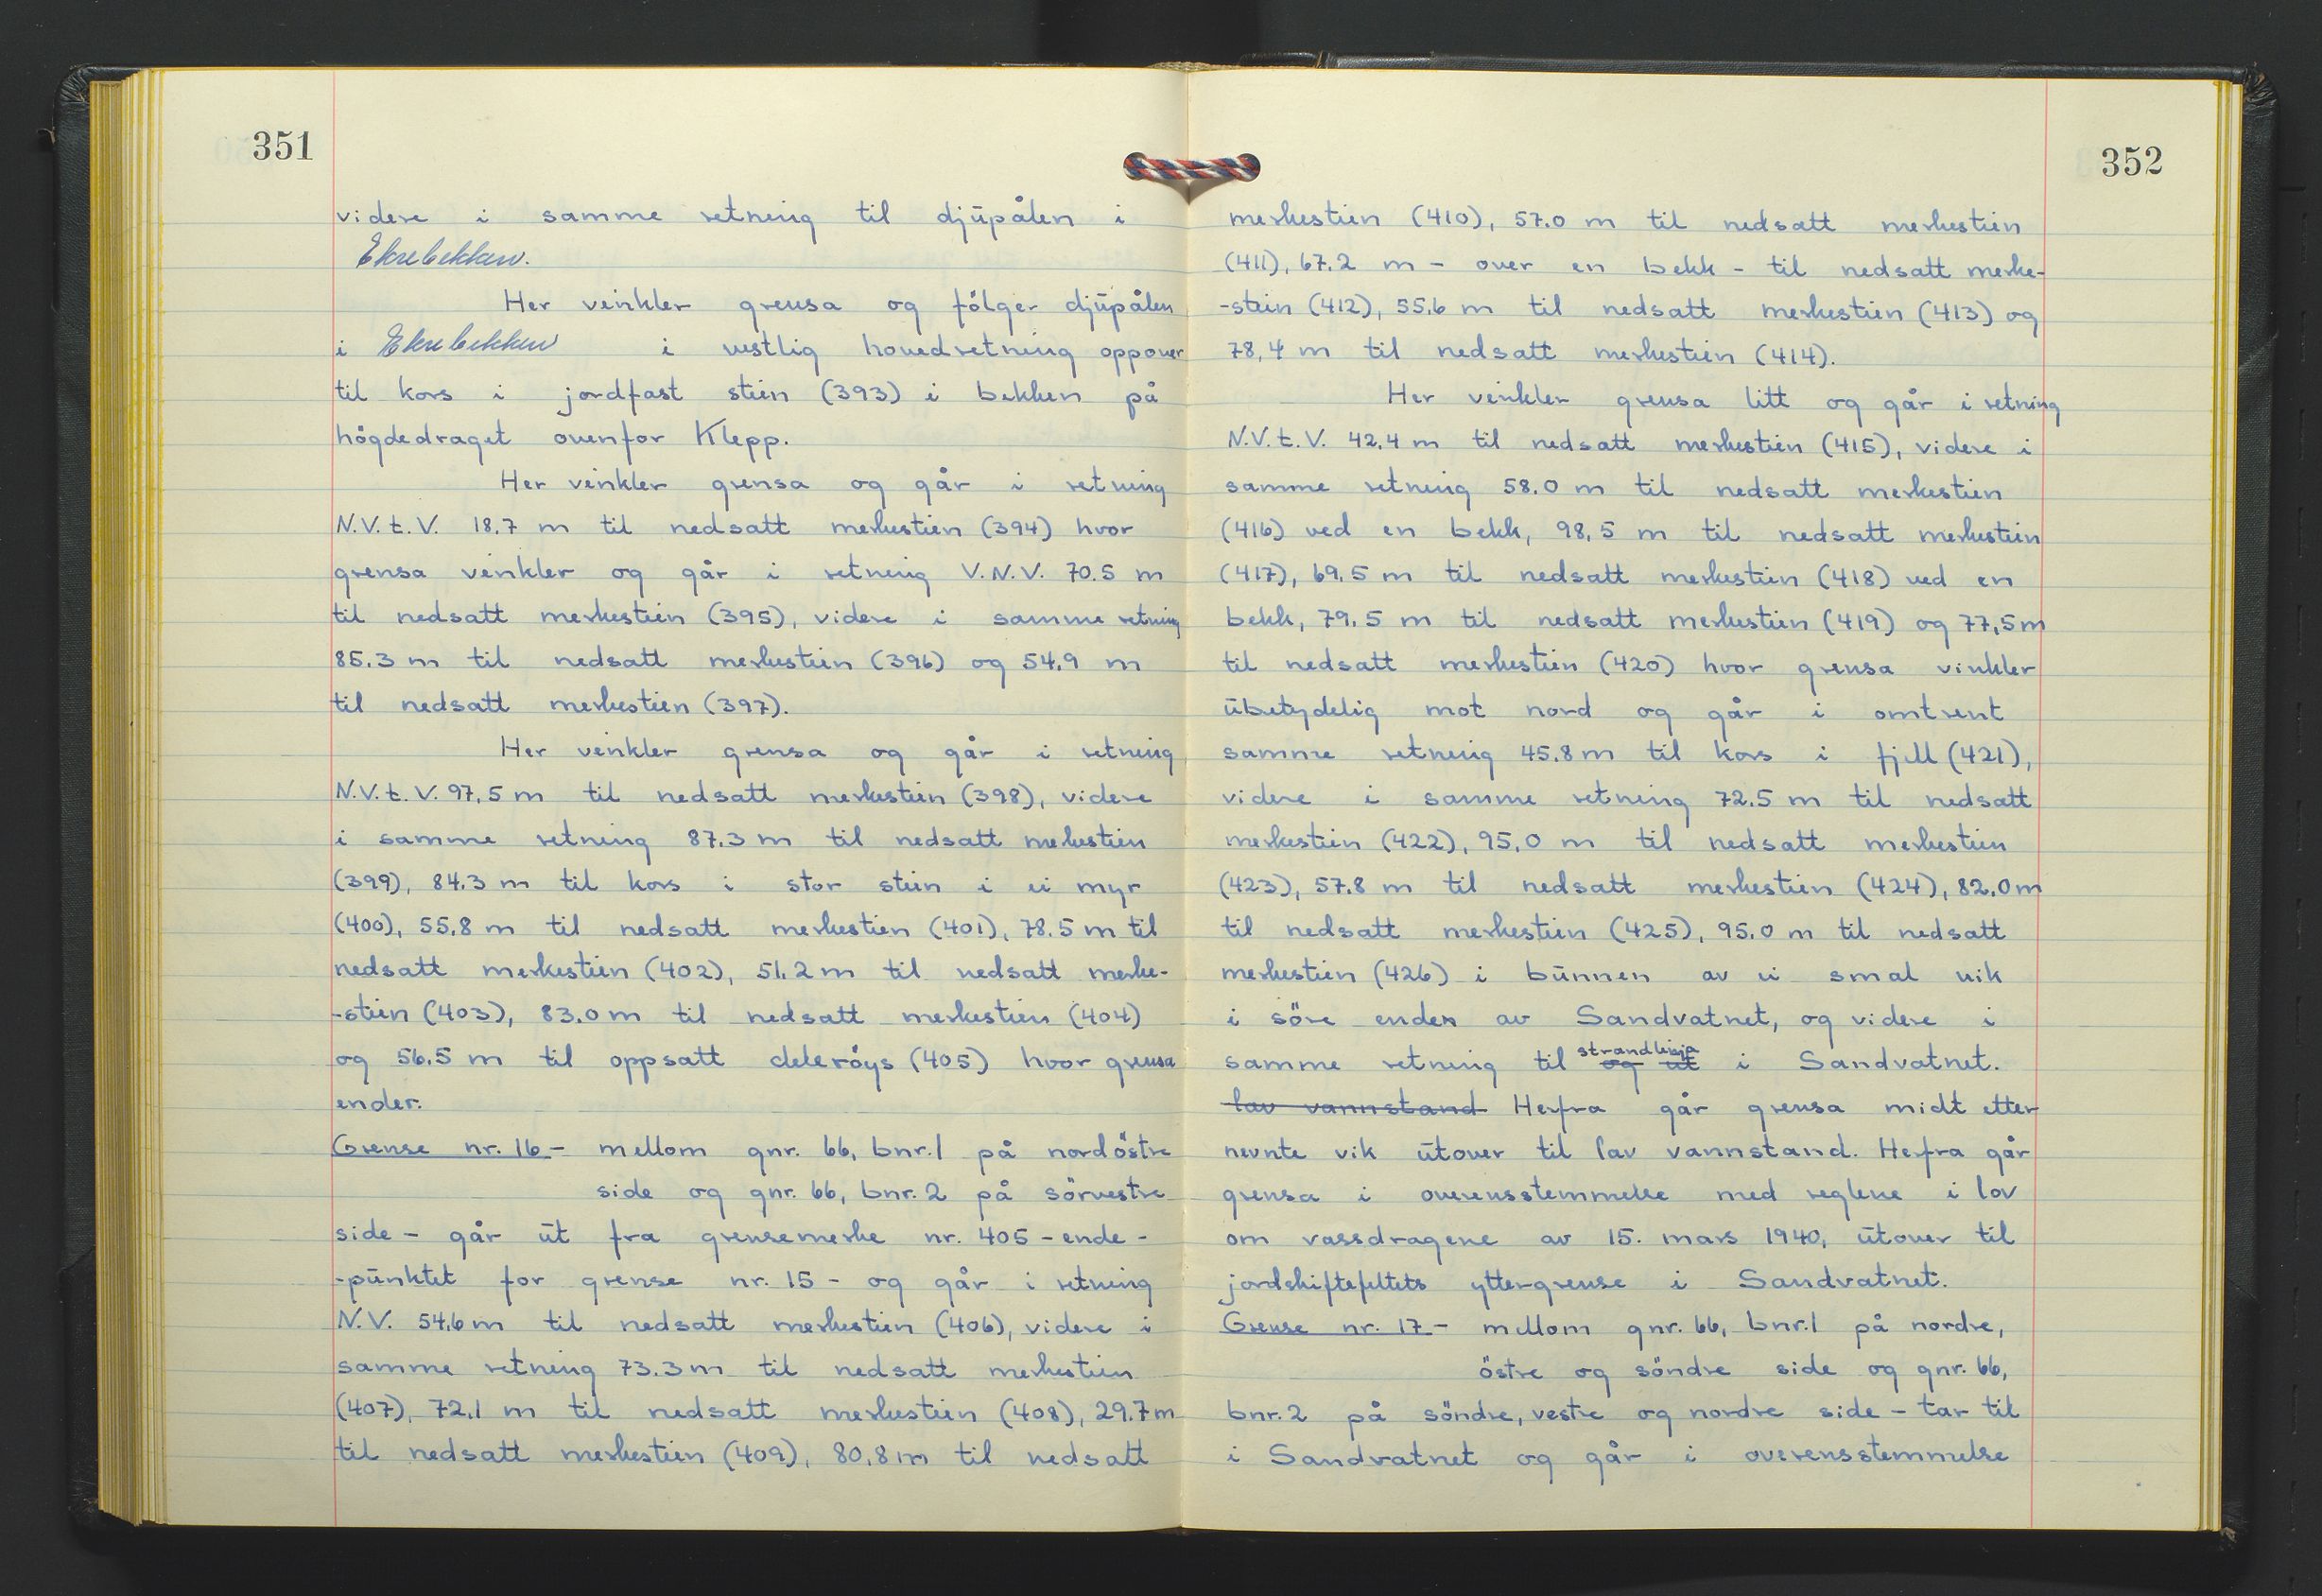 351
videre i samme retning til djupålen i
Ekrebekken.
Her vinkler grensa og fölger djupålen
i Ekrebekken i vestlig hovedretning oppover
til kors i jordfast stein (393) i bekken på
högdedraget ovenfor Klepp.
Her vinkler grensa og går i retning
N.V.t.V. 18.7 m til nedsatt merkestein (394) hvor
grensa vinkler og går i retning V.N.V. 70.5 m
til nedsatt merkestein (395), videre i samme retning
85.3 m til nedsatt merkestein (396) og 54.9 m
til nedsatt merkestein (397).
Her vinkler grensa og går i retning
N.V.t.V. 97,5 m til nedsatt merkestein (398), videre
i samme retning 87.3 m til nedsatt merkestein
(399), 84.3 m til kors i stor stein i ei myr
(400), 55.8 m til nedsatt merkestein (401), 78.5 m til
nedsatt merkestein (402), 51.2 m til nedsatt merke-
-stein (403), 83.0 m til nedsatt merkestein (404)
og 56.5 m til oppsatt deleröys (405) hvor grensa
ender.
Grense nr. 16 - mellom gnr. 66, bnr. 1 på nordöstre
side og gnr. 66, bnr. 2 på sörvestre
side - går ut fra grensemerke nr. 405 - ende-
-punktet for grense nr. 15 - og går i retning
N.V. 54.6 m til nedsatt merkestein (406), videre i
samme retning 73.3 m til nedsatt merkestein
(407), 72.1 m til nedsatt merkestein (408), 29.7 m
til nedsatt merkestein (409), 80.8 m til nedsatt
352
merkestein (410), 57.0 m til nedsatt merkestein
(411), 67.2 m - over en bekk - til nedsatt merke-
-stein (412), 55.6 m til nedsatt merkestein (413) og
78,4 m til nedsatt merkestein (414).
Her vinkler grensa litt og går i retning
N.V.t.V. 42.4 m til nedsatt merkestein (415), videre i
samme retning 58.0 m til nedsatt merkestein
(416) ved en bekk, 98,5 m til nedsatt merkestein
(417), 69.5 m til nedsatt merkestein (418) ved en
bekk, 79.5 m til nedsatt merkestein (419) og 77,5 m
til nedsatt merkestein (420) hvor grensa vinkler
ubetydelig mot nord og går i omtrent
samme retning 45.8 m til kors i fjell (421),
videre i samme retning 72.5 m til nedsatt
merkestein (422), 95,0 m til nedsatt merkestein
(423), 57.8 m til nedsatt merkestein (424), 82.0 m
til nedsatt merkestein (425), 95.0 m til nedsatt
merkestein (426) i bunnen av ei smal vik
i söre enden av Sandvatnet, og videre i
samme retning til strandlinja og ut i Sandvatnet.
lav vannstand Herfra går grensa midt etter
nevnte vik utover til lav vannstand. Herfra går
grensa i overensstemmelse med reglene i lov
om vassdragene av 15. mars 1940, utover til
jordskiftefeltets yttergrense i Sandvatnet.
Grense nr. 17 - mellom gnr. 66, bnr. 1 på nordre,
östre og söndre side og gnr. 66,
bnr. 2 på söndre, vestre og nordre side - tar til
i Sandvatnet og går i overensstemmelse